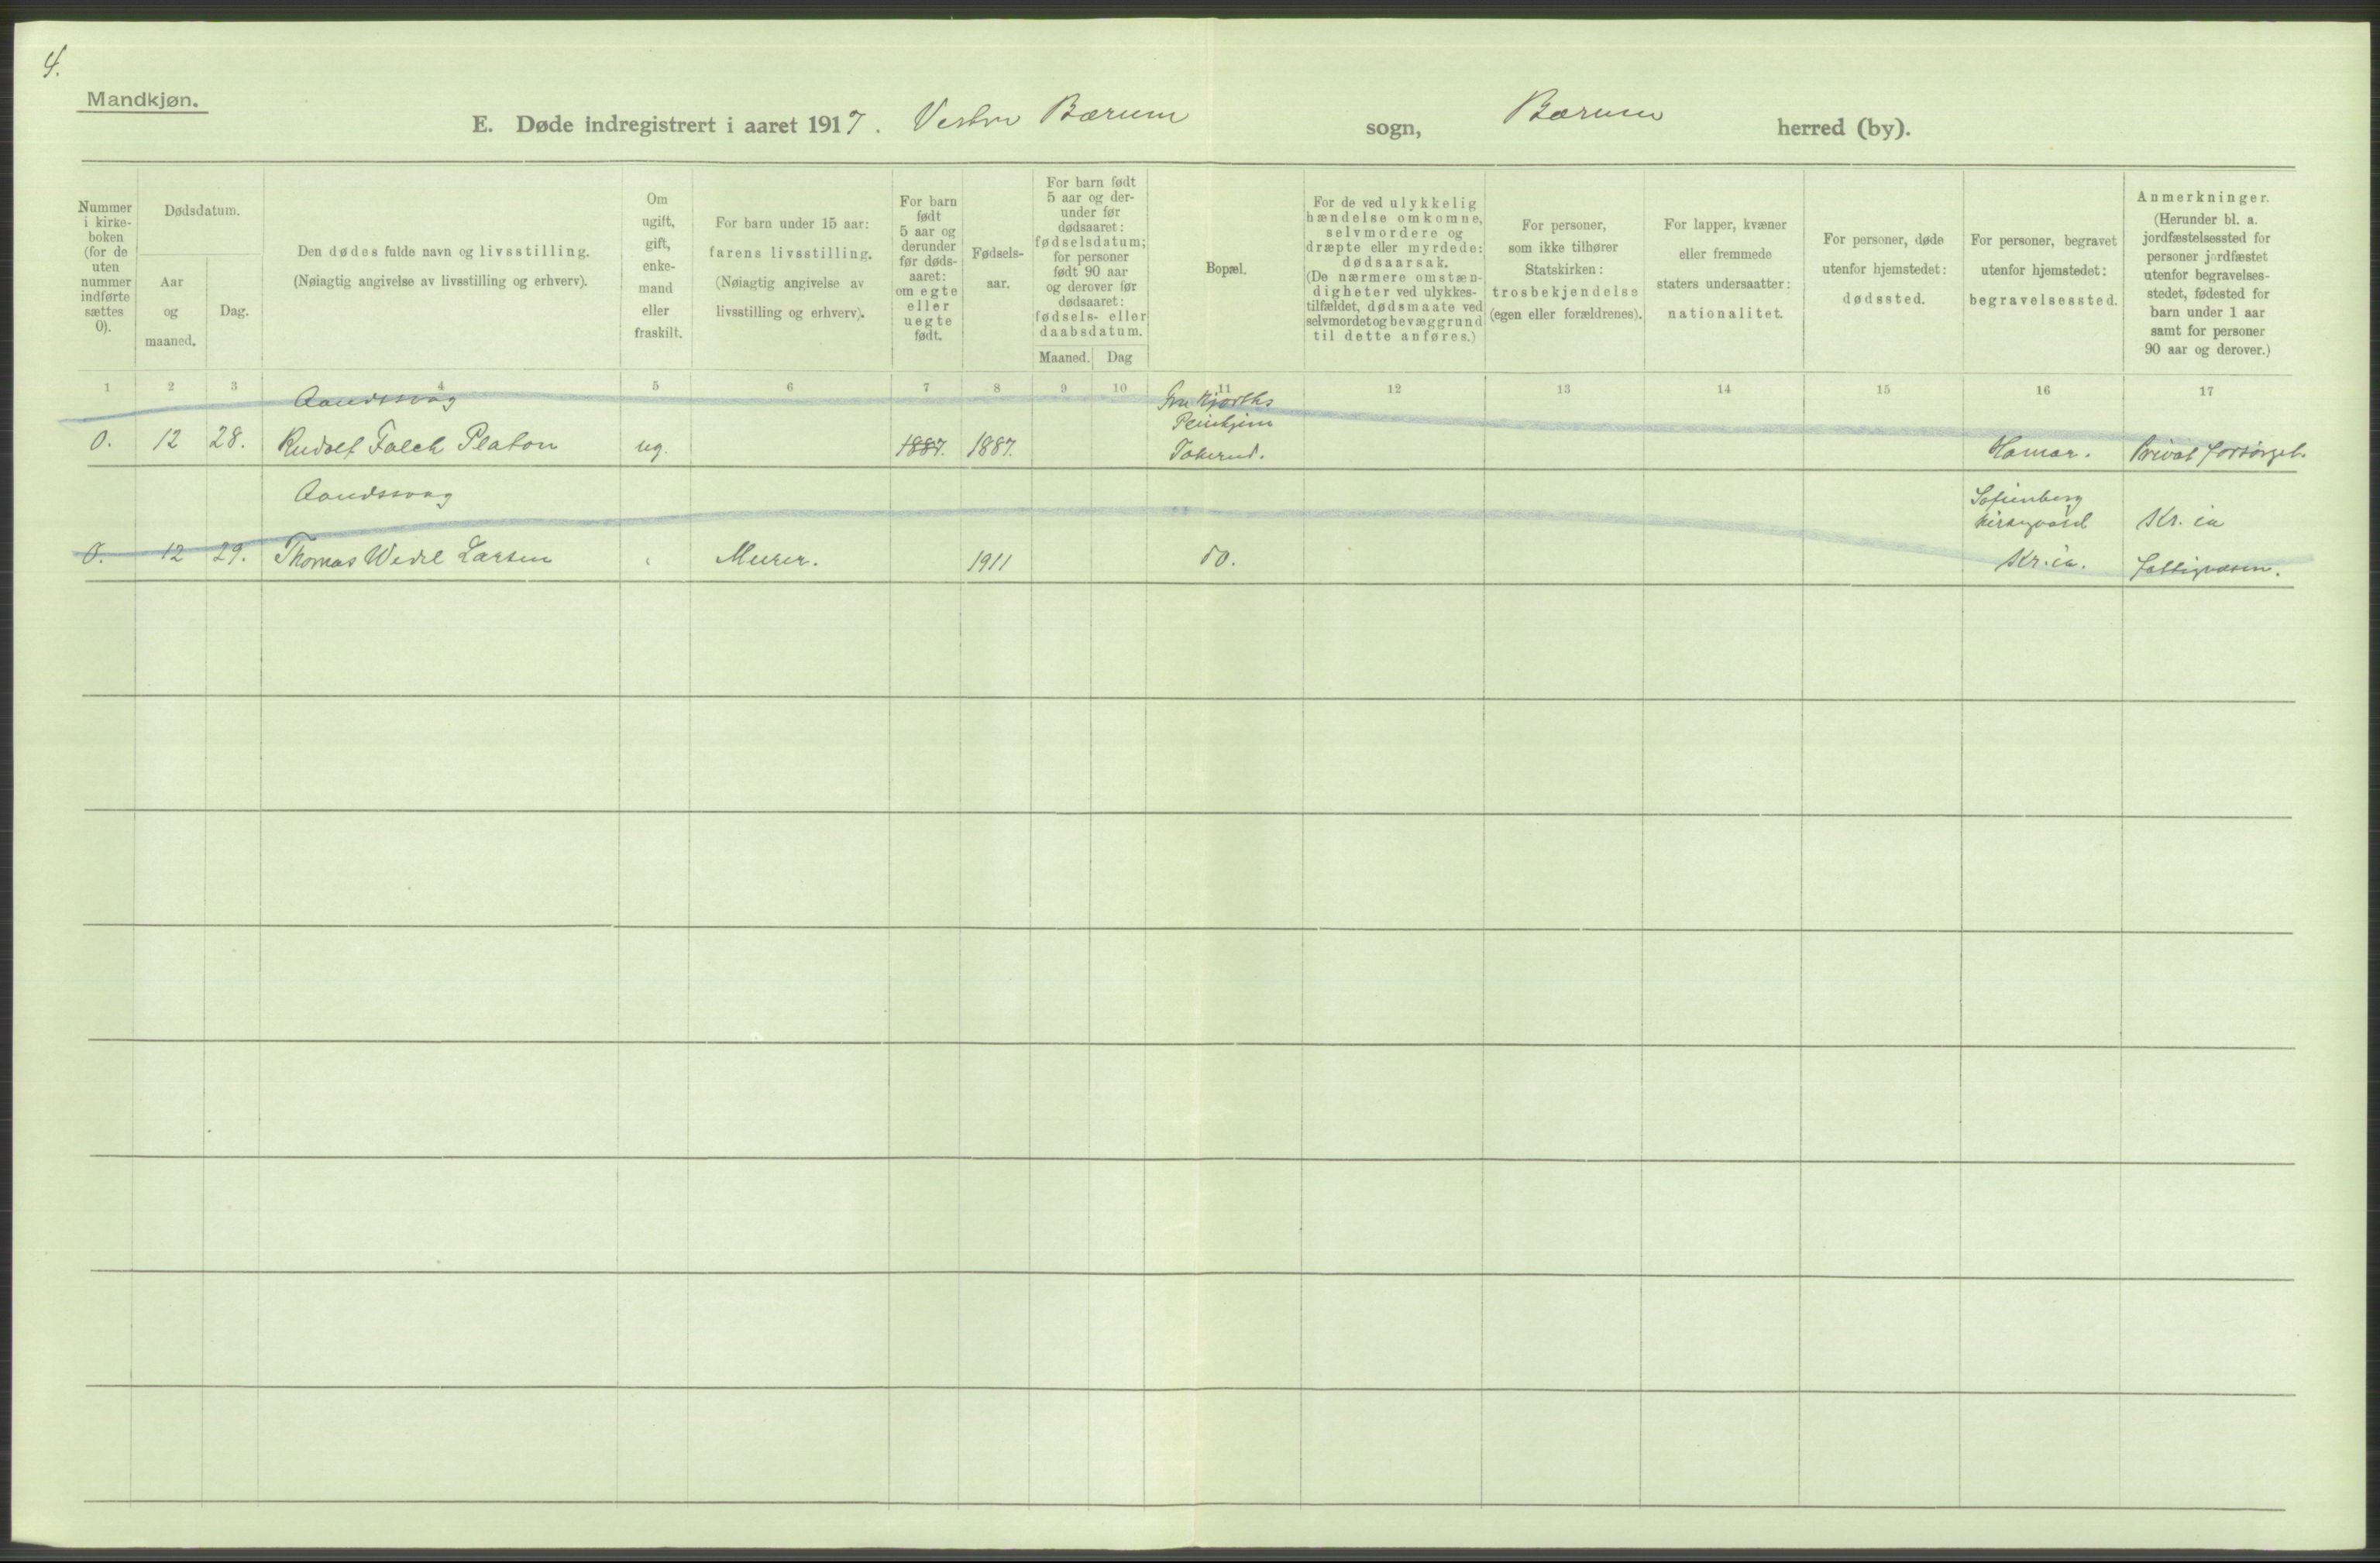 4.
Mandkjøn.
E. Døde indregistrert i aaret 1917. Vestre Bærum sogn, Bærum herred (by).
Nummer i kirke-boken (for de uten nummer indførte sættes 0).
Dødsdatum.
Aar og maaned.
Dag.
Den dødes fulde navn og livsstilling.
(Nøiagtig angivelse av livsstilling og erhverv).
Om ugift, gift, enke-mand eller fraskilt.
For barn under 15 aar:
farens livsstilling.
(Nøiagtig angivelse av
livsstilling og erhverv).
For barn født 5 aar og derunder før døds-aaret: om egte eller uegte født.
Fødsels-aar.
For barn født 5 aar og der-under før dødsaaret: fødselsdatum; for personer født 90 aar og derover før dødsaaret: fødsels- eller daabsdatum.
Maaned. Dag
Bopæl.
For de ved ulykkelig
hændelse omkomne,
selvmordere og
dræpte eller myrdede:
dødsaarsak.
(De nærmere omstæn-
digheter ved ulykkes-
tilfældet, dødsmaate ved
selvmordet og bevæggrund
til dette anføres.)
For personer,
som ikke tilhører
Statskirken:
trosbekjendelse
(egen eller forældrenes).
For lapper, kvæner
eller fremmede
staters undersaatter:
nationalitet.
For personer, døde
utenfor hjemstedet:
dødssted.
For personer, begravet
utenfor hjemstedet:
begravelsessted.
Anmerkninger.
(Herunder bl. a.
jordfæstelsessted for
personer jordfæstet
utenfor begravelses-
stedet, fødested for
barn under 1 aar
samt for personer
90 aar og derover.)
1 2 3 4 5 6 7 8 9 10 11 12 13 14 15 16 17
Aandssvag
Fru Hjorths
Pleiehjem
0. 12 28. Rudolf Falch Platon ug. 1887. 1887. Tokerud. Hamar. Privat forsørget.
Aandssvag
Sofienberg
kirkegaard Kr. ia
0. 12 29. Thomas Wedel Larsen " Murer. 1911 do. Kr.ia. fattigvæsen.